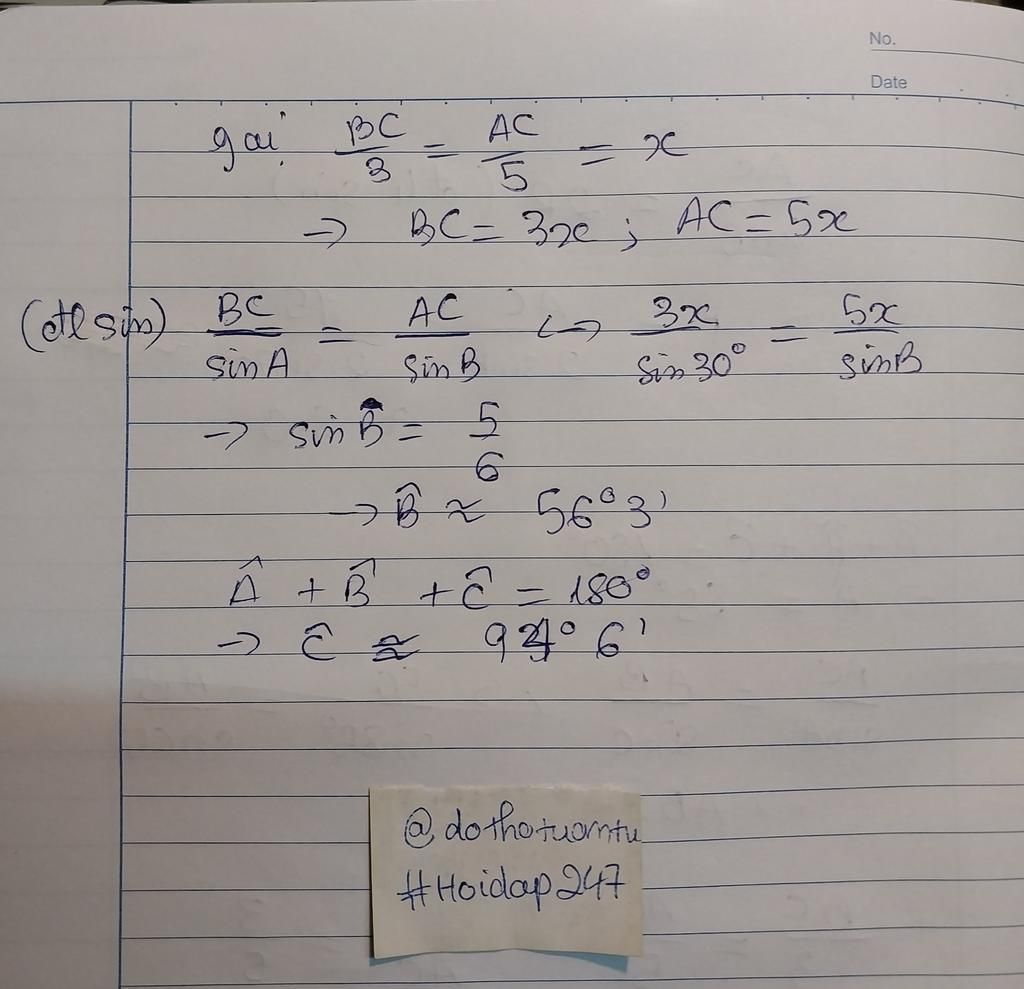 No.
Date
gọi BC/3 = AC/5 = x
→ BC = 3x ; AC = 5x
(đtl sin) BC/sin A = AC/sin B ↔ 3x/sin 30° = 5x/sin B
→ sin B̂ = 5/6
→ B̂ ≈ 56°3'
Â + B̂ + Ĉ = 180°
→ Ĉ ≈ 94°6'
@dothotuomtu
#Hoidap247